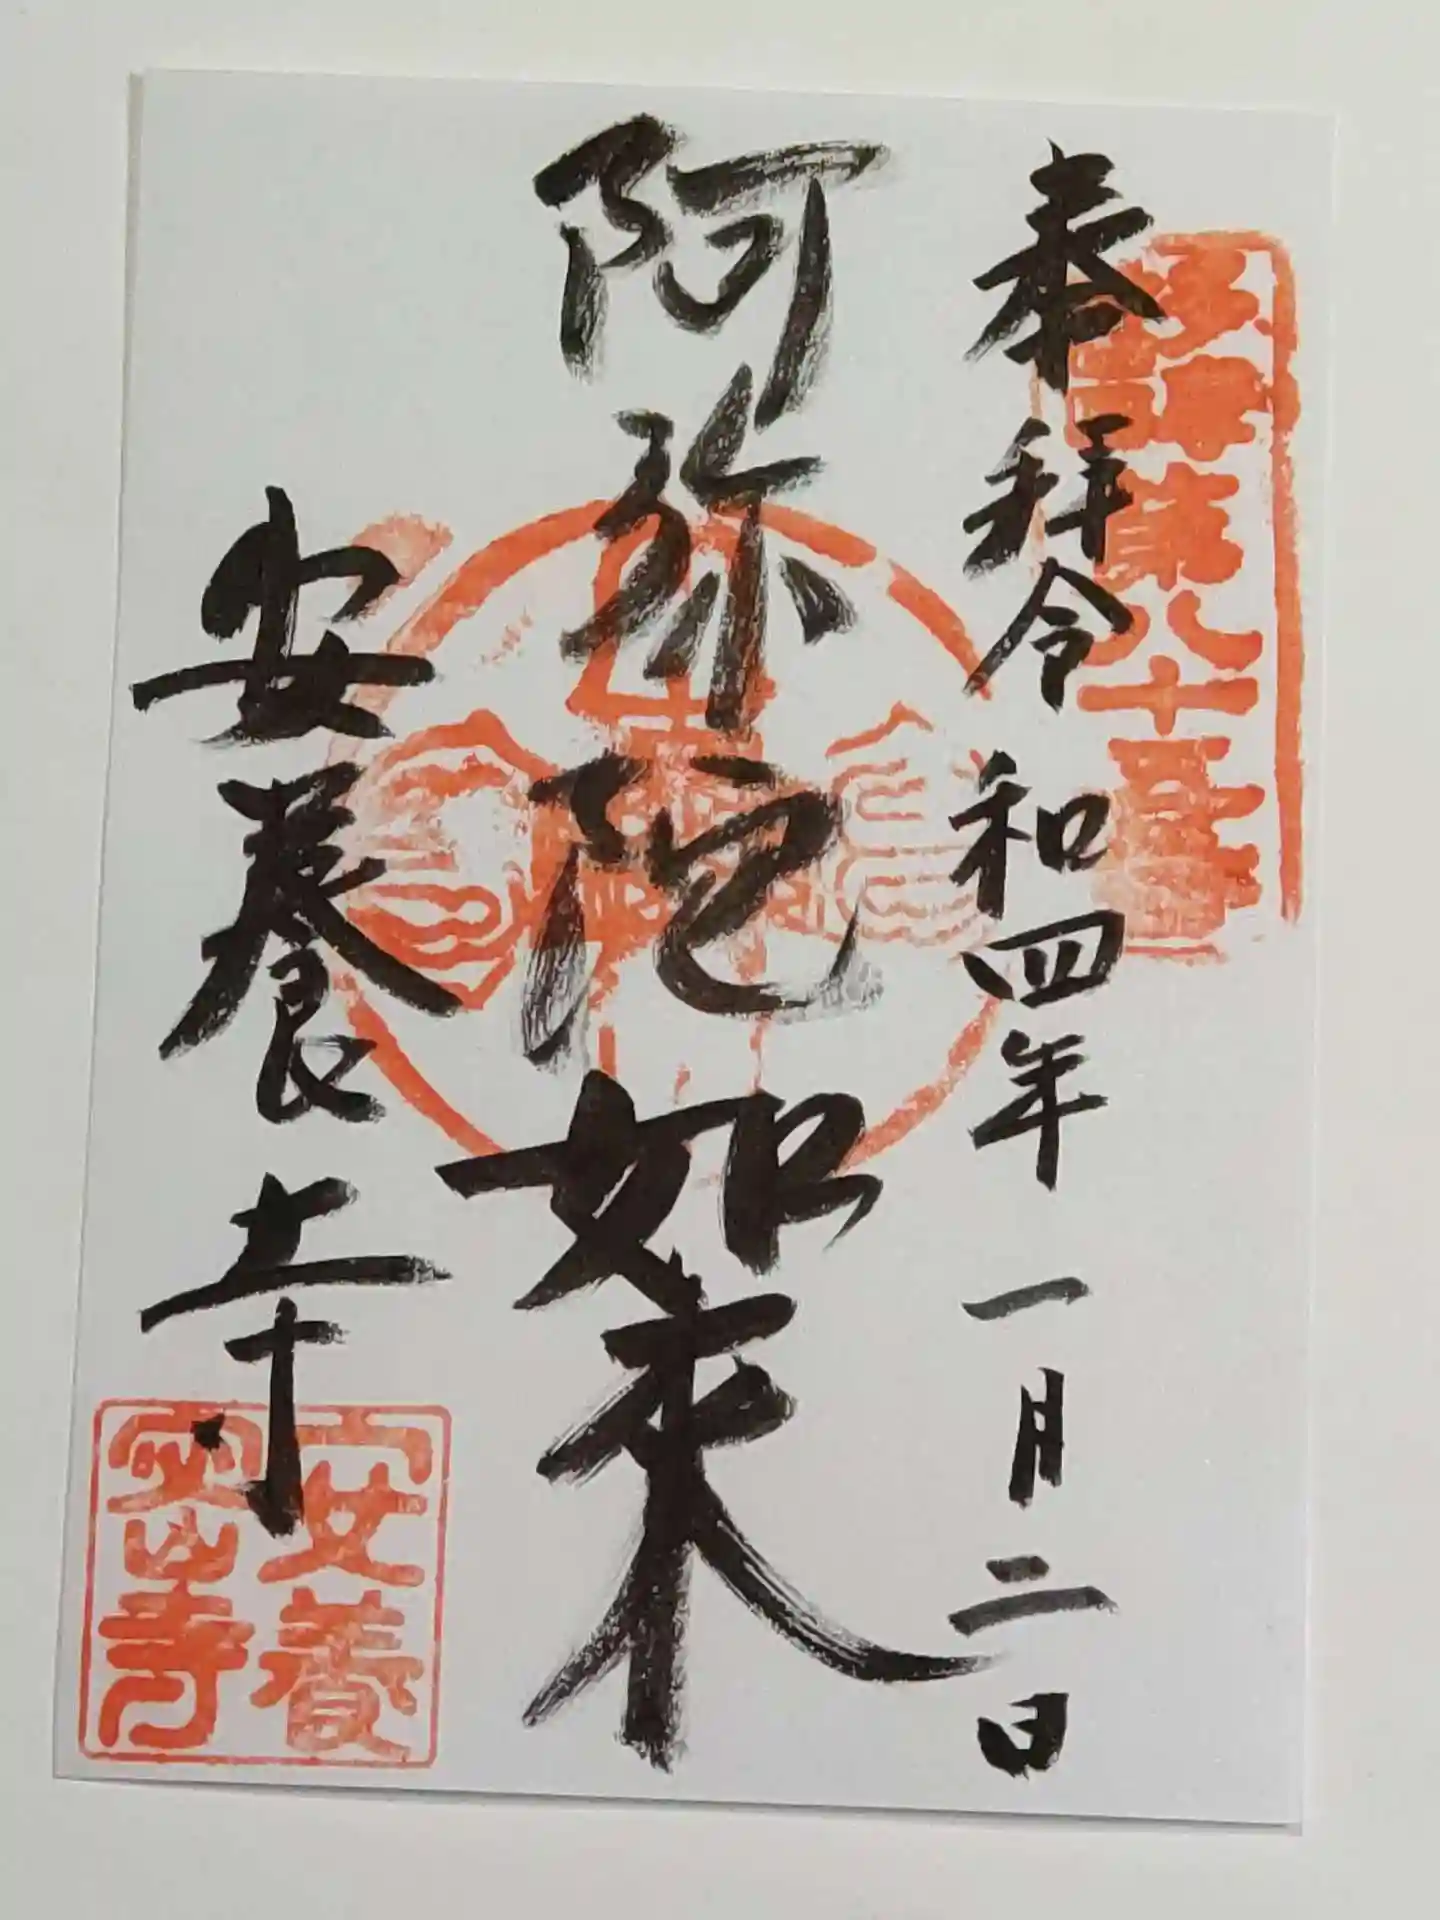 奉拜 令和四年 一月二日
阿弥陀如来
安養寺
第八十番
安養
寺